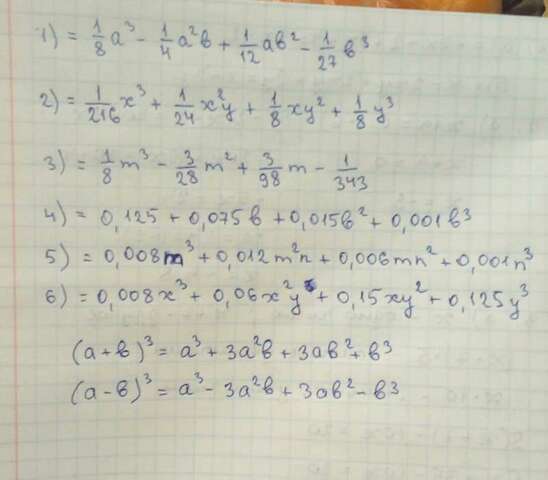 1) = 1/8 a³ - 1/4 a²в + 1/12 ав² - 1/27 в³
2) = 1/216 x³ + 1/24 x²y + 1/8 xy² + 1/8 y³
3) = 1/8 m³ - 3/28 m² + 3/98 m - 1/343
4) = 0,125 + 0,075в + 0,015в² + 0,001в³
5) = 0,008m³ + 0,012m²n + 0,006mn² + 0,001n³
6) = 0,008x³ + 0,06x²y + 0,15xy² + 0,125y³
(a+в)³ = a³ + 3a²в + 3ав² + в³
(a-в)³ = a³ - 3a²в + 3ав² - в³